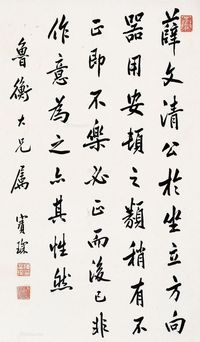 薛文清公於坐立方向
器用安頓之類稍有不
正即不樂必正而後已非
作意為之亦其性然
魯衡大兄屬
寶琛